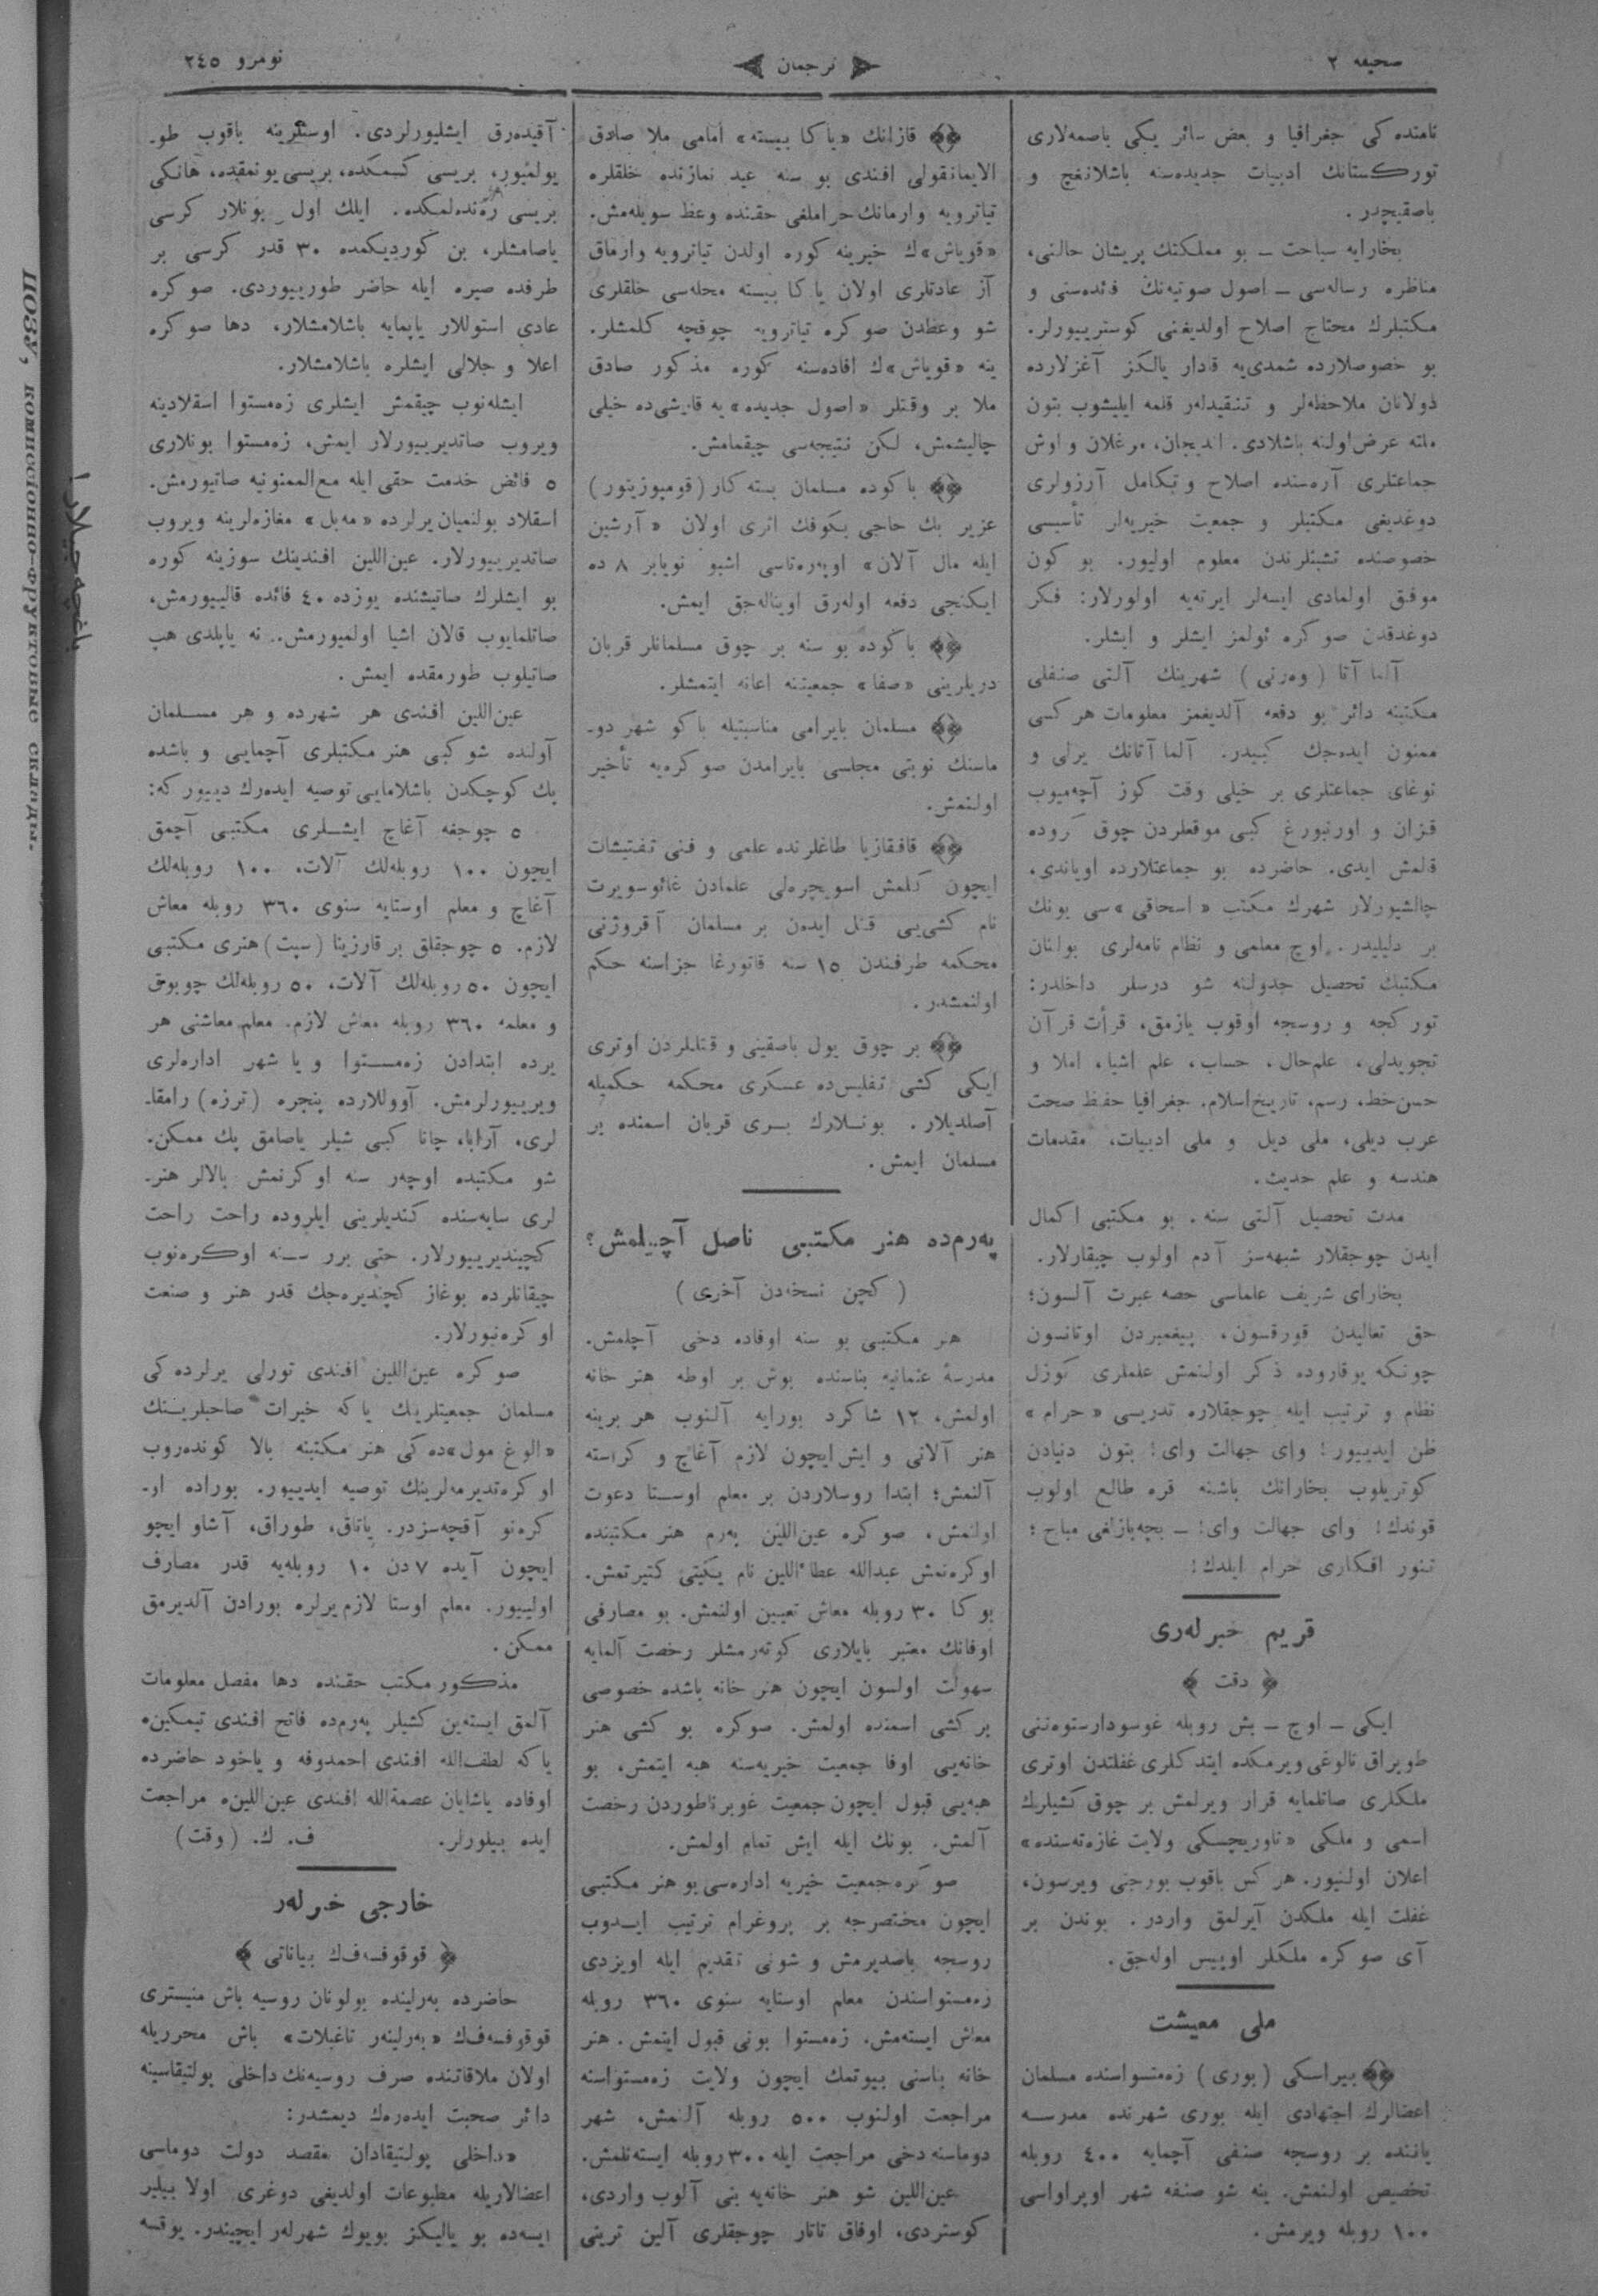 صحیفه ٢
ترجمان
نومرو ٢٤٥
نامنده کی جغرافیا و بعض سائر یکی باصمه‌لاری
تورکستانك ادبیات جدیده‌سنه باشلانغچ و
باصقیچدر .
بخارایه سیاحت ـ بو مملکتك پریشان حالنی،
مناظره رساله‌سی ـ اصول صوتیه‌نك فائده‌سنی و
مکتبلرك محتاج اصلاح اولدیغنی کوسترییورلر.
بو خصوصلارده شمدی‌یه قادار یالکز آغزلارده
دولانان ملاحظه‌لر و تنقیدلەر قلمه ایلیشوب بتون
ملته عرض اولنه باشلادی. اندیجان، مرغلان و اوش
جماعتلری آره‌سنده اصلاح و تکامل آرزولری
دوغدیغی مکتبلر و جمعیت خیریه‌لر تأسیسی
خصوصنده تشبثلرندن معلوم اولیور. بو کون
موفق اولمادی ایسه‌لر ایرته‌یه اولورلار: فکر
دوغدقدن صوکره ئولمز ایشلر و ایشلر.
آلما آتا (وەرنی) شهرینك آلتی صنفلی
مکتبنه دائر بو دفعه آلدیغمز معلومات هرکسی
ممنون ایده‌جك کبیدر. آلما آتانك یرلی و
نوغای جماعتلری بر خیلی وقت کوز آچه‌میوب
قزان و اورنبورغ کبی موقعلردن چوق کروده
قالمش ایدی. حاضرده بو جماعتلارده اویاندی،
چالشیورلار شهرك مکتب «اسحاقی»سی بونك
بر دلیلیدر. اوچ معلمی و نظام نامه‌لری بولنان
مکتبك تحصیل جدولنه شو درسلر داخلدر:
تورکجه و روسجه اوقوب یازمق، قرأت قرآن
تجویدلی، علم‌حال، حساب، علم اشیاء، املا و
حسن‌خط، رسم، تاریخ‌اسلام، جغرافیا حفظ صحت
عرب دیلی، ملی دیل و ملی ادبیات، مقدمات
هندسه و علم حدیث.
مدت تحصیل آلتی سنه. بو مکتبی اکمال
ایدن چوجقلار شبهه‌سز آدم اولوب چیقارلار.
بخارای شریف علماسی حصه عبرت آلسون؛
حق تعالیدن قورقسون، پیغمبردن اوتانسون
چونکه یوقاروده ذکر اولنمش علملری کوزل
نظام و ترتیب ایله چوجقلاره تدریسی «حرام»
ظن ایدییور! وای جهالت وای! بتون دنیادن
کوتریلوب بخارانك باشنه قره طالع اولوب
قوندك! وای جهالت وای! ـ بچه‌بازلغی مباح؛
تنور افکاری حرام ایلدك!
قریم خبرلەری
﴿ دقت ﴾
ایکی ـ اوچ ـ بش روبله غوسودارستوەننی
طوپراق نالوغی ویرمکده ایتدکلری غفلتدن اوتری
ملکلری صاتلمایه قرار ویرلمش بر چوق کشیلرك
اسمی و ملکی «تاوریچسکی ولایت غازه‌ته‌سنده»
اعلان اولنیور. هرکس باقوب بورجنی ویرسون،
غفلت ایله ملکدن آیرلمق واردر. بوندن بر
آی صوکره ملکلر اوپیس اوله‌جق.
ملی معیشت
بیراسکی (بوری) زەمستواسنده مسلمان
اعضالرك اجتهادی ایله بوری شهرنده مدرسه
یاننده بر روسجه صنفی آچمایه ٤٠٠ روبله
تخصیص اولنمش. ینه شو صنفه شهر اوپراواسی
١٠٠ روبله ویرمش.
قازانك «یاکا بیسته» امامی ملا صادق
الایمانقولی افندی بو سنه عید نمازنده خلقلره
تیاترویه وارمانك حراملغی حقنده وعظ سویله‌مش.
«قویاش»ك خبرینه کوره اولدن تیاترویه وارماق
آز عادتلری اولان یاکا بیسته محله‌سی خلقلری
شو وعظدن صوکره تیاترویه چوقچه کلمشلر.
ینه «قویاش»ك افاده‌سنه کوره مذکور صادق
ملا بر وقتلر «اصول جدیده»یه قارشی‌ده خیلی
چالیشمش، لکن نتیجه‌سی چیقمامش.
باکوده مسلمان بسته‌کار (قومپوزیتور)
عزیر بك حاجی بکوفك اثری اولان «آرشین
ایله مال آلان» اوپەرەتاسی اشبو نویابر ٨ ده
ایکنجی دفعه اولەرق اویناله‌جق ایمش.
باکوده بو سنه بر چوق مسلمانلر قربان
دریلرینی «صفا» جمعیتنه اعانه ایتمشلر.
مسلمان بایرامی مناسبتیله باکو شهر دو-
ماسنك نوبتی مجلسی بایرامدن صوکره‌یه تأخیر
اولنمش.
قافقازیا طاغلرنده علمی و فنی تفتیشات
ایچون کلمش اسویچره‌لی علمادن غائوسویرت
نام کشی‌یی قتل ایدەن بر مسلمان آقروژنی
محکمه طرفندن ١٥ سنه قاتورغا جزاسنه حکم
اولنمشدر.
بر چوق یول باصقینی و قتللردن اوتری
ایکی کشی تفلیس‌ده عسکری محکمه حکمیله
آصلدیلار. بونلارك بری قربان اسمنده بر
مسلمان ایمش.
پەرم‌ده هنر مکتبی ناصل آچییلمش؟
(کچن نسخه‌دن آخری)
هنر مکتبی بو سنه اوفاده دخی آچلمش.
مدرسۀ عثمانیه بناسنده بوش بر اوطه هنر خانه
اولمش، ١٢ شاکرد بورایه آلنوب هر برینه
هنر آلاتی و ایش ایچون لازم آغاچ و کراسته
آلنمش؛ ابتدا روسلاردن بر معلم اوستا دعوت
اولنمش، صوکره عین‌اللین پەرم هنر مکتبنده
اوکره‌نمش عبدالله عطاءاللین نام یکیتی کتیرتمش.
بوکا ٣٠ روبله معاش تعیین اولنمش. بو مصارفی
اوفانك معتبر بایلاری کوتەرمشلر رخصت آلمایه
سهولت اولسون ایچون هنر خانه باشده خصوصی
بر کشی اسمنده اولمش. صوکره بو کشی هنر
خانه‌یی اوفا جمعیت خیریه‌سنه هبه ایتمش، بو
هبه‌یی قبول ایچون جمعیت غوبرناطوردن رخصت
آلمش. بونك ایله ایش تمام اولمش.
صوکره جمعیت خیریه اداره‌سی بو هنر مکتبی
ایچون مختصرجه بر پروغرام ترتیب ایدوب
روسجه باصدیرمش و شونی تقدیم ایله اویزدی
زەمستواسندن معلم اوستایه سنوی ٣٦٠ روبله
معاش ایسته‌مش. زەمستوا بونی قبول ایتمش. هنر
خانه بناسنی بیوتمك ایچون ولایت زەمستواسنه
مراجعت اولنوب ٥٠٠ روبله آلنمش، شهر
دوماسنه دخی مراجعت ایله ٣٠٠ روبله ایسته‌نلمش.
عین‌اللین شو هنر خانه‌یه بنی آلوب واردی،
کوستردی، اوفاق تاتار چوجقلری آلین ترینی
آقیده‌رق ایشلیورلردی. اوستلرینه باقوب طو-
یولمیور، بریسی کسمکده، بریسی یونمقده، هانکی
بریسی رەندەلمکده. ایلك اول بونلار کرسی
یاصامشلر، بن کوردیکمده ٣٠ قدر کرسی بر
طرفده صیره ایله حاضر طورییوردی. صوکره
عادی استوللار یاپمایه باشلامشلار، دها صوکره
اعلا و جلالی ایشلره باشلامشلار.
ایشله‌نوب چیقمش ایشلری زەمستوا اسقلادینه
ویروب صاتدیرییورلار ایمش، زەمستوا بونلاری
٥ فائض خدمت حقی ایله مع‌الممنونیه صاتیورمش.
اسقلاد بولنمیان یرلرده «مەبل» مغازه‌لرینه ویروب
صاتدیرییورلار. عین‌اللین افندینك سوزینه کوره
بو ایشلرك صاتیشنده یوزده ٤٠ فائده قالییورمش،
صاتلمایوب قالان اشیا اولمیورمش.. نه یاپلدی هپ
صاتیلوب طورمقده ایمش.
عین‌اللین افندی هر شهرده و هر مسلمان
آولنده شو کبی هنر مکتبلری آچمایی و باشده
پك کوچکدن باشلامایی توصیه ایده‌رك دییور که:
٥ چوجغه آغاچ ایشلری مکتبی آچمق
ایچون ١٠٠ روبله‌لك آلات، ١٠٠ روبله‌لك
آغاچ و معلم اوستایه سنوی ٣٦٠ روبله معاش
لازم. ٥ چوجقلق بر قارزینا (سپت) هنری مکتبی
ایچون ٥٠ روبله‌لك آلات، ٥٠ روبله‌لك چوبوق
و معلمه ٣٦٠ روبله معاش لازم. معلم معاشنی هر
یرده ابتدادن زەمستوا و یا شهر اداره‌لری
ویرییورلرمش. آووللارده پنجره (ترزه) رامقا-
لری، آرابا، چانا کبی شیلر یاصامق پك ممکن.
شو مکتبده اوچەر سنه اوکرنمش بالالر هنر-
لری سایه‌سنده کندیلرینی ایلروده راحت راحت
کچیندیرییورلار. حتی برر سنه اوکره‌نوب
چیقانلرده بوغاز کچندیره‌جك قدر هنر و صنعت
اوکره‌نیورلار.
صوکره عین‌اللین افندی تورلی یرلرده کی
مسلمان جمعیتلرینك یاکه خیرات صاحبلرینك
«الوغ مول»ده کی هنر مکتبنه بالا کونده‌روب
اوکره‌تدیرمه‌لرینك توصیه ایدییور. بوراده او-
کره‌نو آقچه‌سزدر. یاتاق، طوراق، آشاو ایچو
ایچون آیده ٧دن ١٠ روبله‌یه قدر مصارف
اولییور. معلم اوستا لازم یرلره بورادن آلدیرمق
ممکن.
مذکور مکتب حقنده دها مفصل معلومات
آلمق ایسته‌ین کشیلر پەرم‌ده فاتح افندی تیمکینه
یاکه لطف‌الله افندی احمدوفه و یاخود حاضرده
اوفاده یاشایان عصمةالله افندی عین‌اللینه مراجعت
ایده بیلورلر. ف. ك. (وقت)
خارجی خبرلەر
﴿ قوقوفسەف‌ك بیاناتی ﴾
حاضرده بەرلینده بولونان روسیه باش منیستری
قوقوفسەف‌ك «بەرلینەر تاغبلات» باش محرریله
اولان ملاقاتنده صرف روسیه‌نك داخلی پولتیقاسینه
دائر صحبت ایده‌رەك دیمشدر:
«داخلی پولتیقادان مقصد دولت دوماسی
اعضالاریله مطبوعات اولدیغی دوغری اولا بیلیر
ایسه‌ده بو یالیکز بویوك شهرلەر ایچیندر. یوقسه